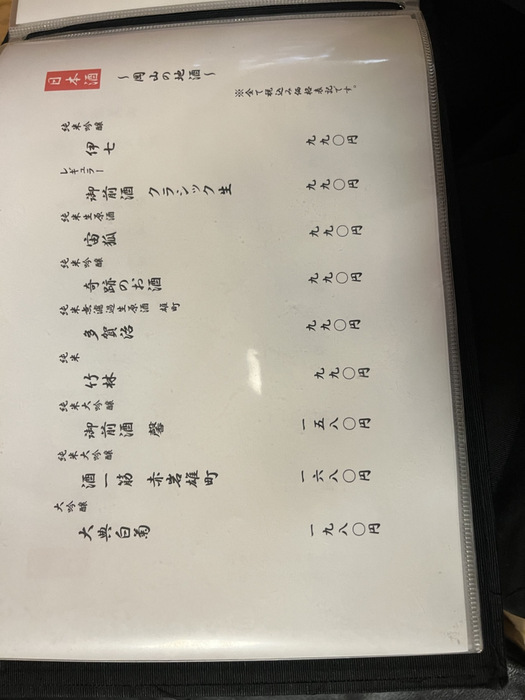 日本酒 ～岡山の地酒～
※全て税込み価格表記です。
純米吟醸
伊七 九九〇円
レギュラー
御前酒 クラシック生 九九〇円
純米生原酒
宙狐 九九〇円
純米吟醸
奇跡のお酒 九九〇円
純米無濾過生原酒 雄町
多賀治 九九〇円
純米
竹林 九九〇円
純米大吟醸
御前酒 馨 一五八〇円
純米大吟醸
酒一筋 赤岩雄町 一六八〇円
大吟醸
大典白菊 一九八〇円